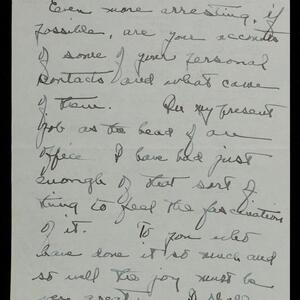 Even more arresting, if
possible, are your accounts
of some of your personal
contacts and what came
of them. In my present
job as the head of an
office I have had just
enough of that sort of
thing to feel the fascination
of it. To you who
have done it so much and
so well the joy must be
very great